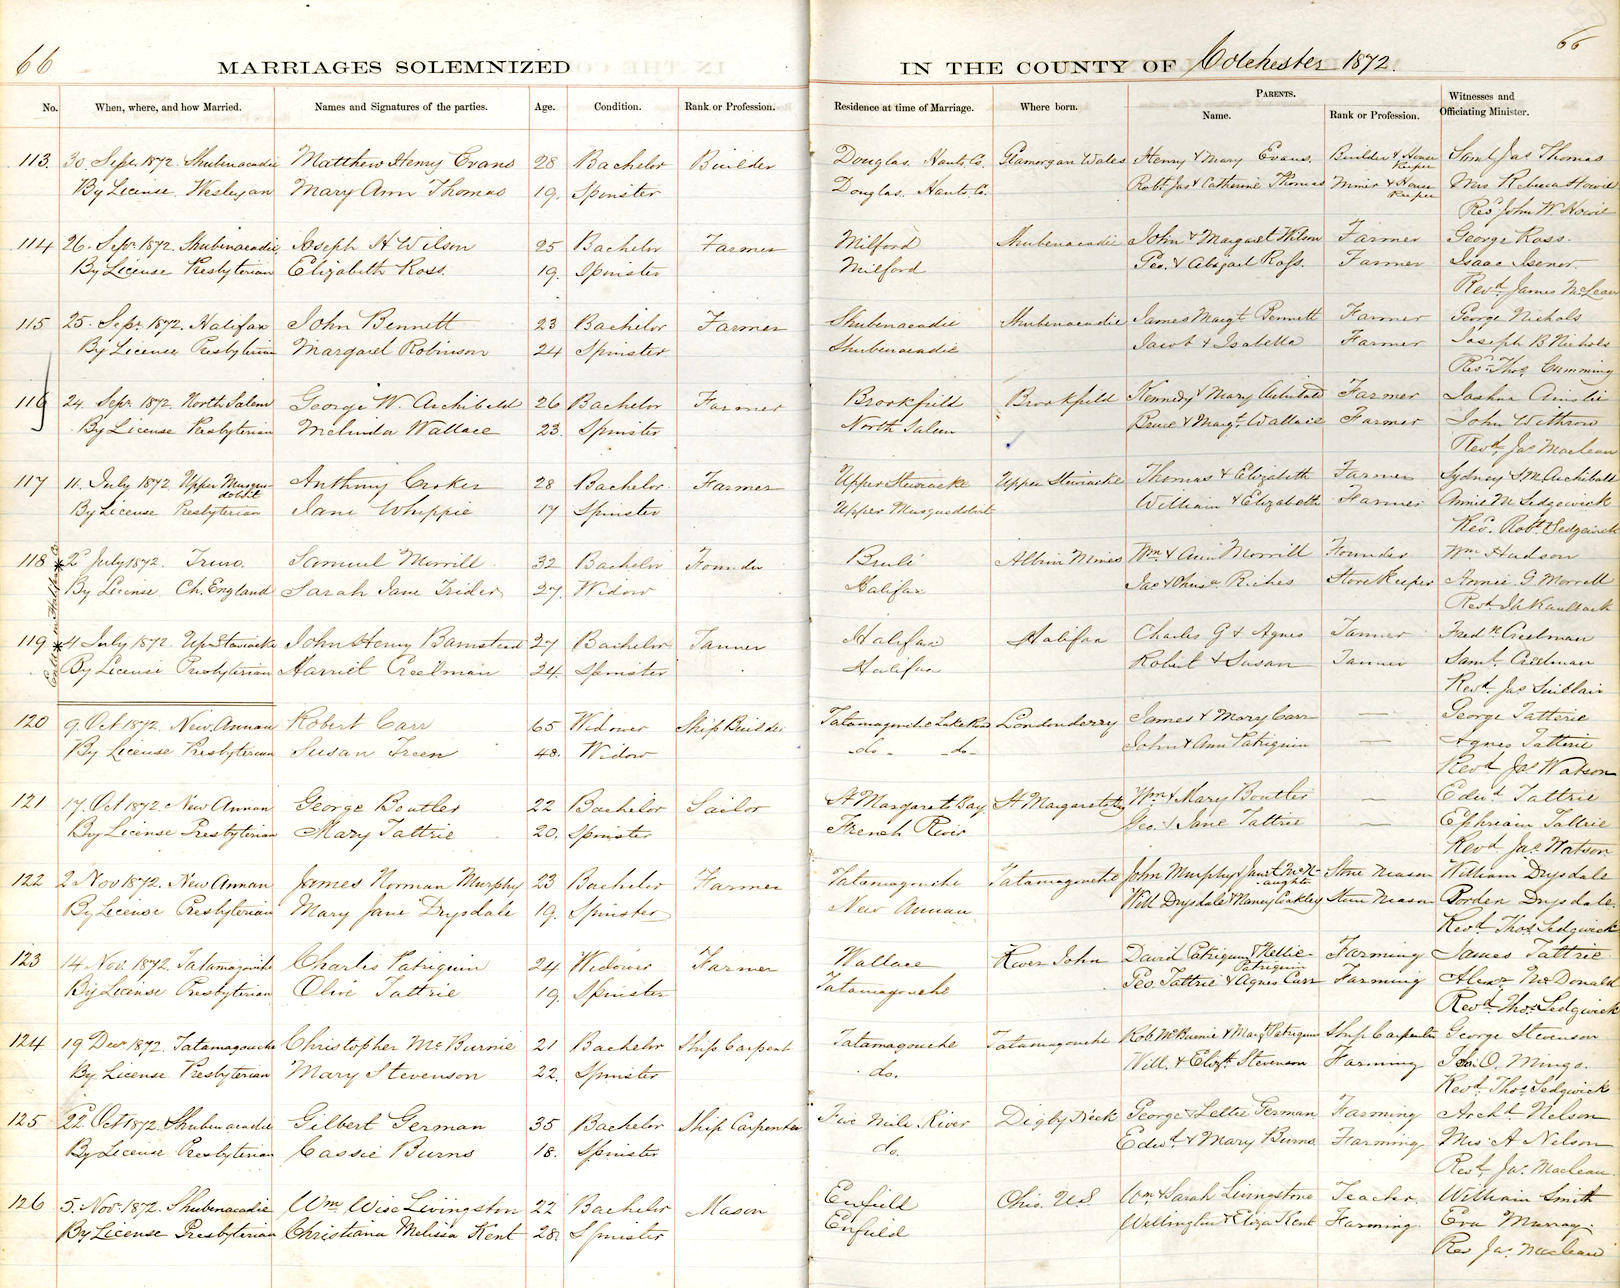 66
MARRIAGES SOLEMNIZED
IN THE COUNTY OF Colchester 1872.
66
No. When, where, and how Married. Names and Signatures of the parties. Age. Condition. Rank or Profession. Residence at time of Marriage. Where born. PARENTS. Name. Rank or Profession. Witnesses and Officiating Minister.
113. 30 Sept. 1872. Shubenacadie Matthew Henry Evans 28 Bachelor Builder Douglas. Hants Co. Glamorgan Wales Henry & Mary Evans. Builder & House Keeper Saml Jas Thomas
By License Wesleyan Mary Ann Thomas 19. Spinster Douglas. Hants Co. Robt Jas & Catherine Thomas Miner & House Keeper Mrs Rebecca Howie
Revd John W. Howie
114 26. Sept. 1872. Shubenacadie Joseph H Wilson 25 Bachelor Farmer Milford Shubenacadie John & Margaret Wilson Farmer George Ross.
By License Presbyterian Elizabeth Ross. 19. Spinster Milford Geo. & Abigail Ross. Farmer Isaac Isenor.
Revd. James McLean
115 25. Sept. 1872. Halifax John Bennett 23 Bachelor Farmer Shubenacadie Shubenacadie James Margt Bennett Farmer George Nichols
By License Presbyterian Margaret Robinson 24 Spinster Shubenacadie Jacob & Isabella Farmer Joseph B Nichols
Revd Thos. Cumming
116 24. Sept. 1872. North Salem George W. Archibald 26 Bachelor Farmer Brookfield Brookfield Kennedy & Mary Archibald Farmer Joshua Ainslie
By License Presbyterian Melinda Wallace 23. Spinster North Salem & Margt. Wallace Farmer John Withrow
Revd. Jas Maclean
117 11. July 1872 Upper Musquodobit Anthony Croker 28 Bachelor. Farmer Upper Stewiacke Upper Stewiacke Thomas & Elizabeth Farmer Sydney Archibald
By License Presbyterian Jane Whippie 17 Spinster Upper Musquodobit William & Elizabeth Farmer Annie M Sedgewick
Rev. Robt. Sedgewick
118 * 2d July 1872. Truro. Samuel Morrill 32 Bachelor Founder Brulé Albion Mines Wm & Ann Morrill Founder Wm Hudson
By License Ch. England Sarah Jane Trider 27. Widow Halifax Jas & Riches Store Keeper Annie G Morrell
Revd Kaulback
119 * 4 July 1872. Up Stewiacke John Henry Bamstead 27 Bachelor Tanner Halifax Halifax Charles G & Agnes Tanner Fredk Creelman
By License Presbyterian Harriet Creelman 24. Spinster Halifax Robert & Susan Tanner Saml. Creelman
Revd. Jas Sinclair
120 9. Oct 1872. New Annan Robert Carr 65 Widower Ship Builder Tatamagouche Lake Road Londonderry James & Mary Carr — George Tattrie
By License Presbyterian Susan Treen 48. Widow do- do- John & Ann Patriquin — Agnes Tattrie
Revd Jas Watson
121 17. Oct 1872. New Annan George Boutler 22 Bachelor Sailor St Margarets Bay St Margarets Bay Wm & Mary Boutler — Edwd Tattrie
By License Presbyterian Mary Tattrie 20. Spinster French River Geo. & Jane Tattrie — Ephriam Tattrie
Revd Jas Watson
122 2 Nov 1872. New Annan James Norman Murphy 23 Bachelor Farmer Tatamagouche Tatamagouche John Murphy & Janet McNaught Stone Mason William Drysdale
By License Presbyterian Mary Jane Drysdale 19. Spinster New Annan Will Drysdale & Nancy Coakley Stone Mason Borden Drysdale.
Revd. Thos Sedgwick
123 14 Nov. 1872. Tatamagouche Charles Patriquin 24 Widower Farmer Wallace River John David Patriquin & Nellie Patriquin Farming James Tattrie
By License Presbyterian Olive Tattrie 19. Spinster Tatamagouche Geo. Tattrie & Agnes Carr Farming Alexr McDonald
Revd. Thos. Sedgwick
124 19 Decr 1872. Tatamagouche Christopher McBurnie 21 Bachelor Ship Carpent Tatamagouche Tatamagouche Rob. McBurnie & Margt Patriquin Ship Carpenter George Stevenson
By License Presbyterian Mary Stevenson 22. Spinster do. Will. & Elizth Stevenson Farming O. Mings.
Revd. Thos Sedgwick
125 22 Oct 1872. Shubenacadie Gilbert German 35 Bachelor Ship Carpenter Five Mile River Digby Neck George & Lettie German Farming Archd Nelson
By License Presbyterian Cassie Burns 18. Spinster do. Edwd. & Mary Burns Farming Mrs A Nelson
Revd. Jas. Maclean
126 5. Nov. 1872. Shubenacadie Wm Wise Livingston 22 Bachelor Mason Enfield Ohio. U.S Wm & Sarah Livingstone Teacher. William Smith
By License Presbyterian Christiana Melissa Kent 28. Spinster Enfield Wellington & Eliza Kent Farming Eva Murray.
Rev Jas. Maclean